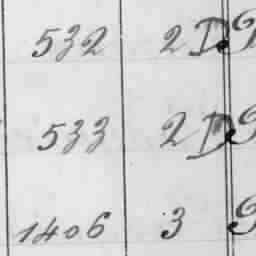 532 2 D
533 2 D
1406 3